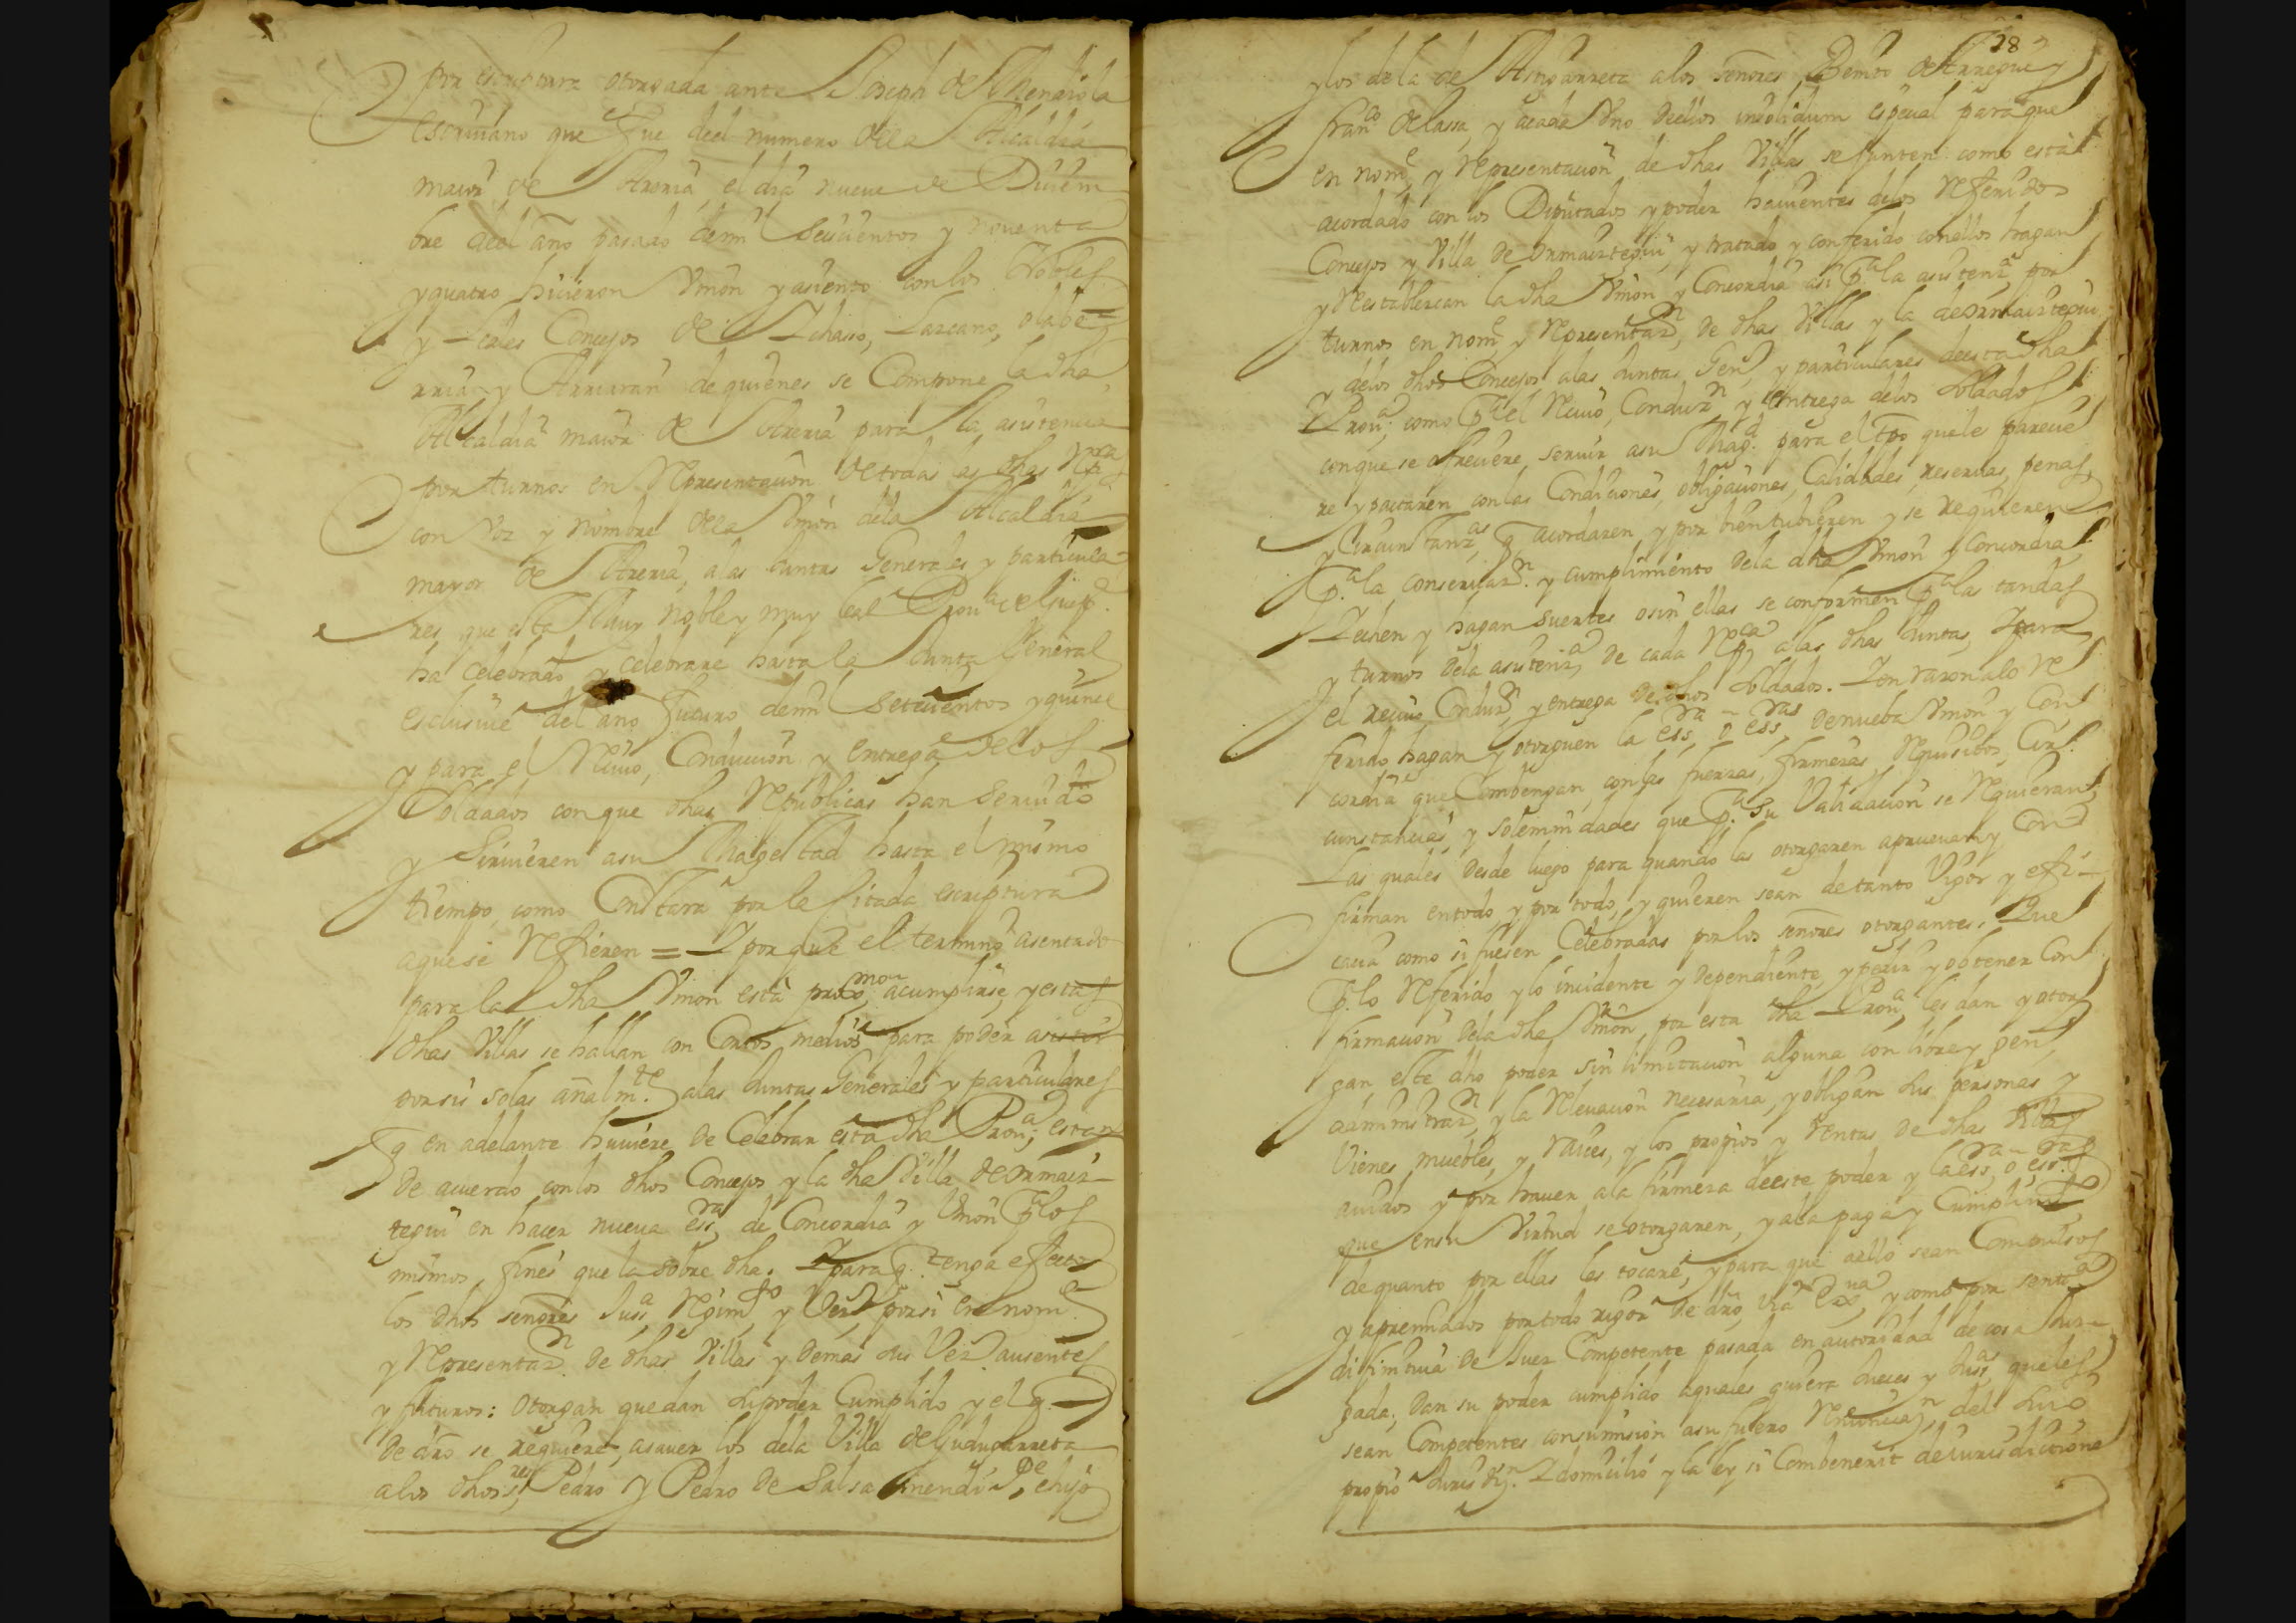 por escriptura otorgada ante Joseph de Mendiola
escriuano que fue deel numero de la Alcaldia
maior de Areria, el dia nueue de Diciem
bre deel año pasado de mil seiscientos y nouenta
y quatro hicieron Vnion y asiento con los Nobles
y Leales Concejos de Ichaso, Lazcano, olabe=
rria, y Arriaran de quienes se Compone la dha
Alcaldia maior de Areria para la asistencia
por turnos en Representacion de todas las dhas Rpcas
con Voz y nombre de la Vnion de la Alcaldia
mayor de Areria, a las Juntas Generales y particula-
res, que esta Muy noble y muy leal Prou.a de Guipp.a
ha Celebrado y celebrare hasta la Junta General
esclusiue del año futuro de mil setecientos y quince
y para el Reciuo, Conduccion y entrega de los
Soldados con que dhas Republicas han seruido
y Siruieren a su Magestad hasta el mismo
tiempo, como Constara por la Citada escriptura
a que se Refieren = Y por que el termino asentado
para la dha Vnion está proxmo a cumplirse, y estas
dhas Villas se hallan con Cortos medios para poder asistir
por si solas añalm.te a las Juntas Generales y particulares
q en adelante huuiere de Celebrar esta dha Prou.a, estan
de acuerdo con los dhos Concejos y la dha Villa de Ormaiz-
tegui en hacer nueua essra de Concordia y Vnion p.a los
mismos fines que la sobre dha. Y para q. tenga efecto
los dhos señores Just.a Regim.to y Vez.s por si en nom.e
y Representaz.n de dhas Villas y demas sus Vez.s ausentes
y futuros: otorgan que dan su poder Cumplido y el q
de dro se requiere, asauer los de la Villa de Gudugarreta
a los dhos s.res Pedro y Pedro de Salsamendi P.e e hijo
28
y los de la de Astigarreta a los señores Benito de Arregui y
Fran.co de Lassa, y a cada Vno dellos insolidum especial para que
en nom.e y Representacion de dhas Villas se Junten como está
acordado con los Diputados y poder hauientes de los Referidos
Concejos y Villa de Ormaiztegui, y tratado y conferido con ellos hagan
y Restablezcan la dha Vnion y Concordia asi p.a la asistenz.a por
turnos en nom.e y Representaz.n de dhas Villas y la de Ormaiztegui
y de los dhos Concejos a las Juntas Gen.s y particulares de esta dha
Prou.a, como p.a el Reciuo, Conduz.n y entrega de los soldados
con que se ofreciere seruir a su Mag.d para el tpo que le parecie
re y pactaren con las Condiciones, obligaciones, Calidades, reseruas, penas
y Circunstanz.as q acordaren, y por bien tubieren y se requieren
p.a la conseruaz.n y cumplimiento de la dha Vnion y Concordia
Y echen y hagan suertes o sin ellas se conformen p.a las tandas
y turnos de la asistenz.a de cada Rpca a las dhas Juntas, Y para
el reciuo, Conduz.n y entrega de dhos soldados. Y en razon a lo Re
ferido hagan y otorguen la essra o essras de nueba Vnion y Con
cordia que Combengan, con las fuerzas, firmezas, Requisitos, Cir-
cunstancias, y solemnidades que p.a su Validacion se Requieran,
Las quales desde luego para quando las otorgaren aprueuan y Con=
firman en todo, y por todo, y quieren sean de tanto Vigor y efi-
cacia como si fuesen Celebradas por los señores otorgantes. Que
p.a lo Referido y lo incidente y dependiente, y pedir y obtener Con
firmacion de la dha Vnion, por esta dha Prou.a, les dan y otor
gan este dho poder sin limitacion alguna con libre y gen.l
administraz.n, y la Releuacion necesaria, y obligan sus personas y
Vienes muebles, y raices, y los propios y Rentas de dhas Villas
auidos y por hauer a la firmeza de este poder y la essra, o essras
que en su Virtud se otorgaren, y a la paga y Cumplim.to
de quanto por ellas les tocare, y para que a ello sean Compulsos
y apremiados por todo rigor de dro, Via ex.ua, y como por sent.a
difinitiua de Juez Competente pasada en autoridad de cosa Juz-
gada; dan su poder cumplido a quales quiera Jueces y Just.as que les
sean Competentes con sumision a su fuero Renunciaz.n del Suio
propio Jurisdiz.n Y domicilio y la ley si Combenerit de iurisdictione